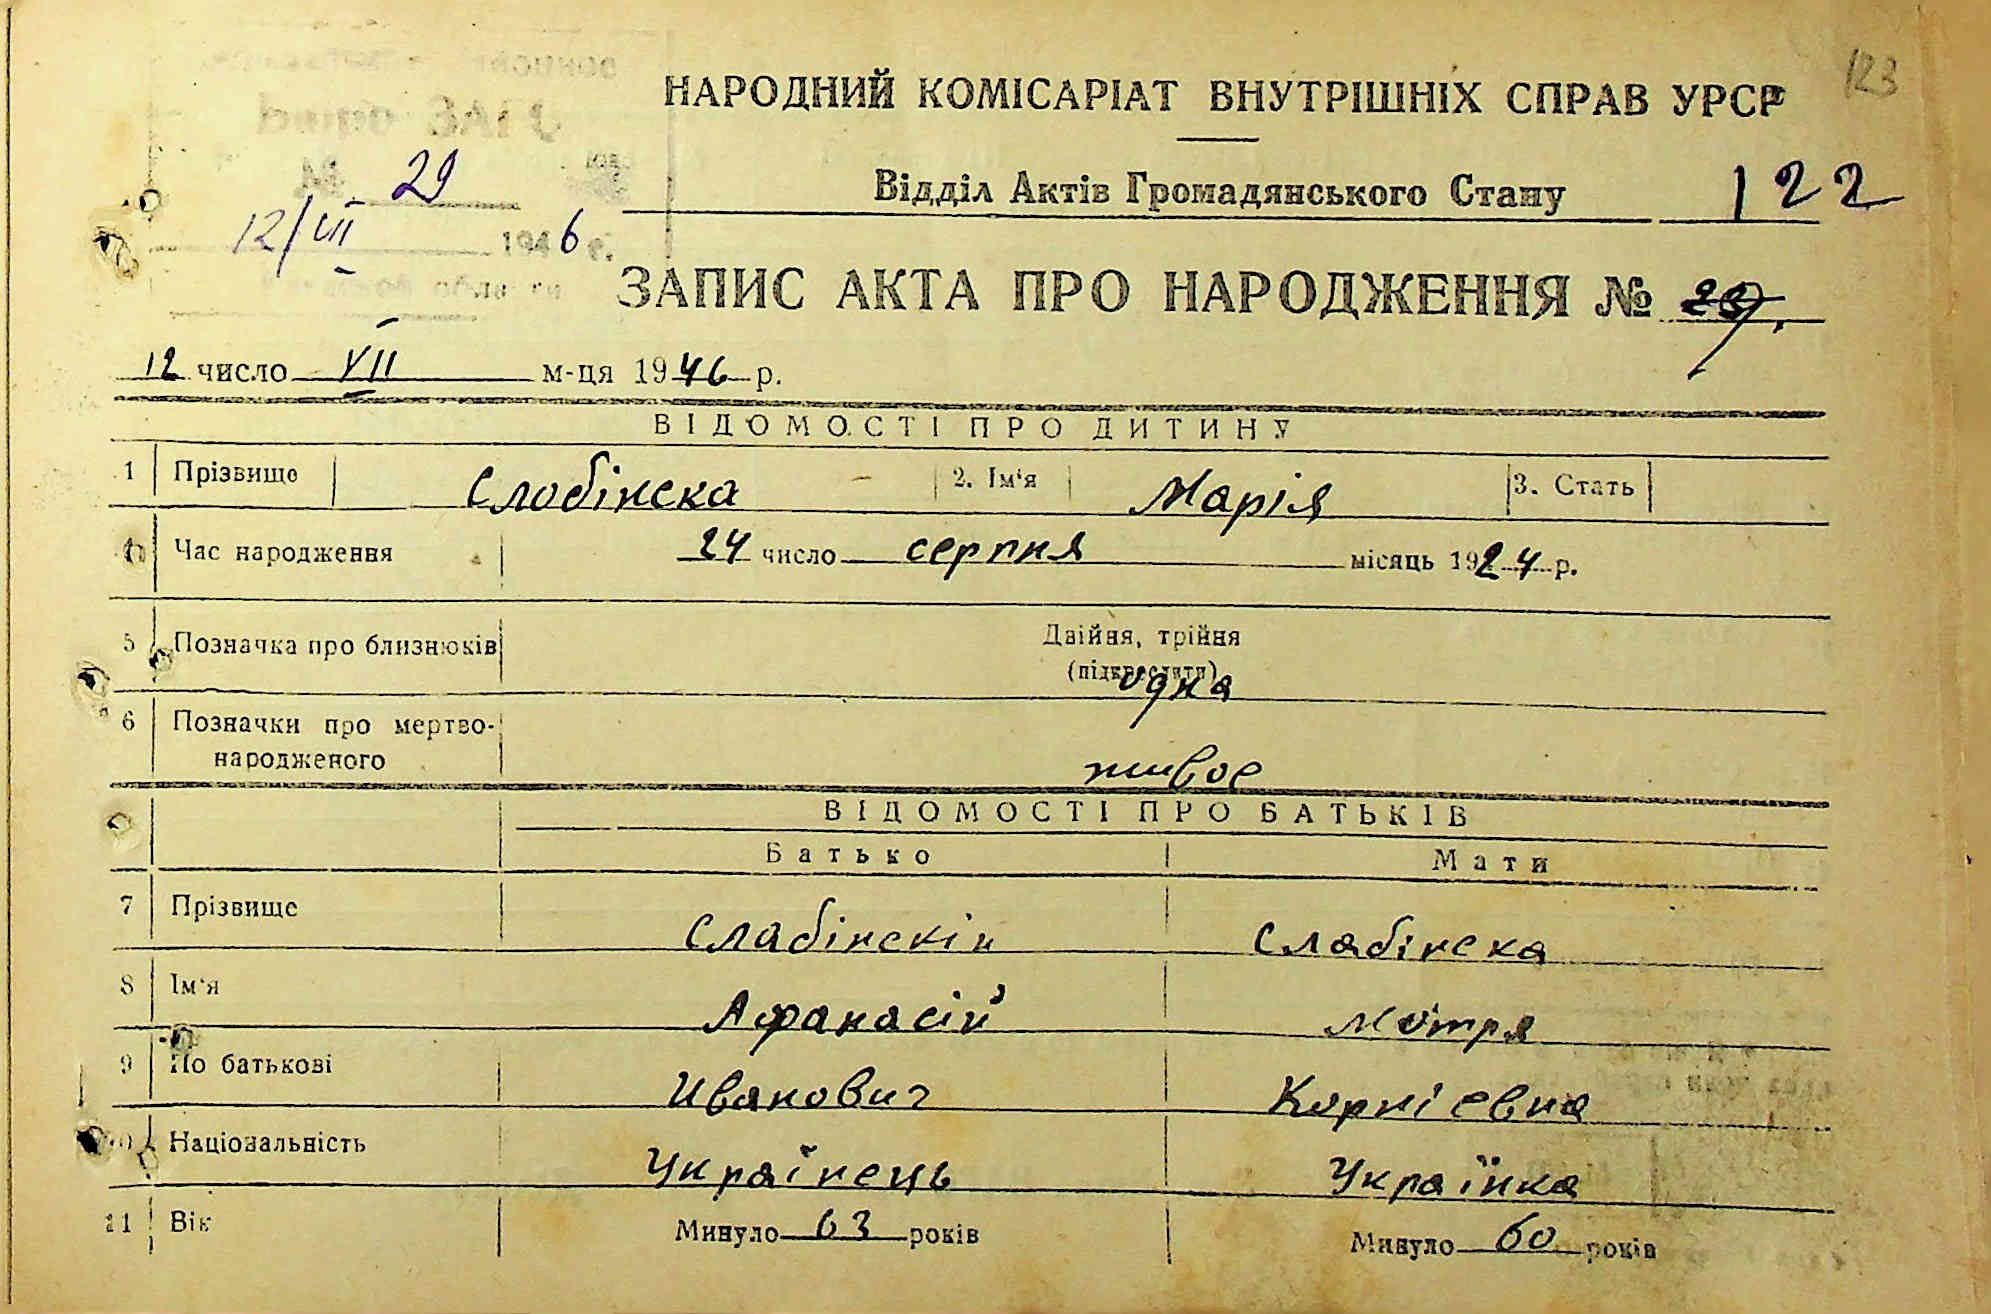 123
НАРОДНИЙ КОМІСАРІАТ ВНУТРІШНІХ СПРАВ УРСР
Відділ Актів Громадянського Стану 122
29
12/VII 1946 г.
ЗАПИС АКТА ПРО НАРОДЖЕННЯ № 29
12 число VII м-ця 1946 р.
ВІДОМОСТІ ПРО ДИТИНУ
1 Прізвище Слобінска 2. Ім'я Марія 3. Стать
4 Час народження 24 число серпня місяць 1924 р.
5 Позначка про близнюків Двійня, трійня
(підкреслити)
одна
6 Позначки про мертво-
народженого живое
ВІДОМОСТІ ПРО БАТЬКІВ
Батько Мати
7 Прізвище Слабінскій Слабінска
8 Ім'я Афанасій Мотря
9 По батькові Иванович Корніевна
10 Національність Українець Українка
11 Вік Минуло 63 років Минуло 60 років